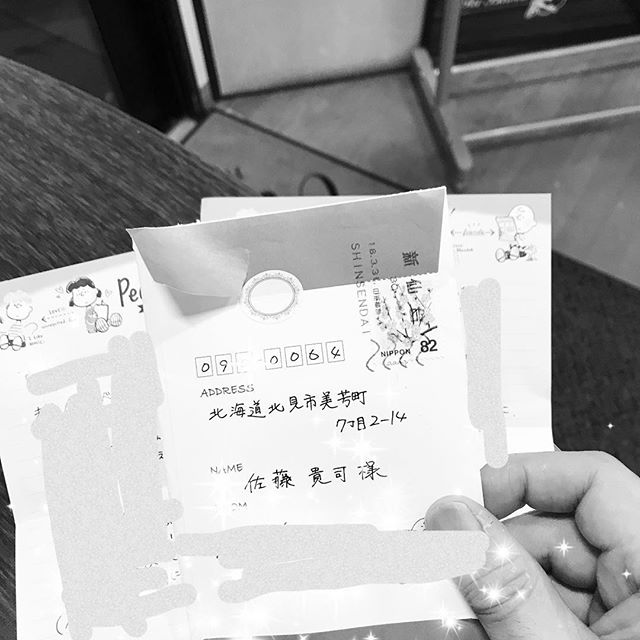 Pe
新仙台
18.3.3
SHINSENDAI
NIPPON 82
09 0064
ADDRESS
北海道北見市美芳町
7丁目2-14
NAME
佐藤 貴司 様